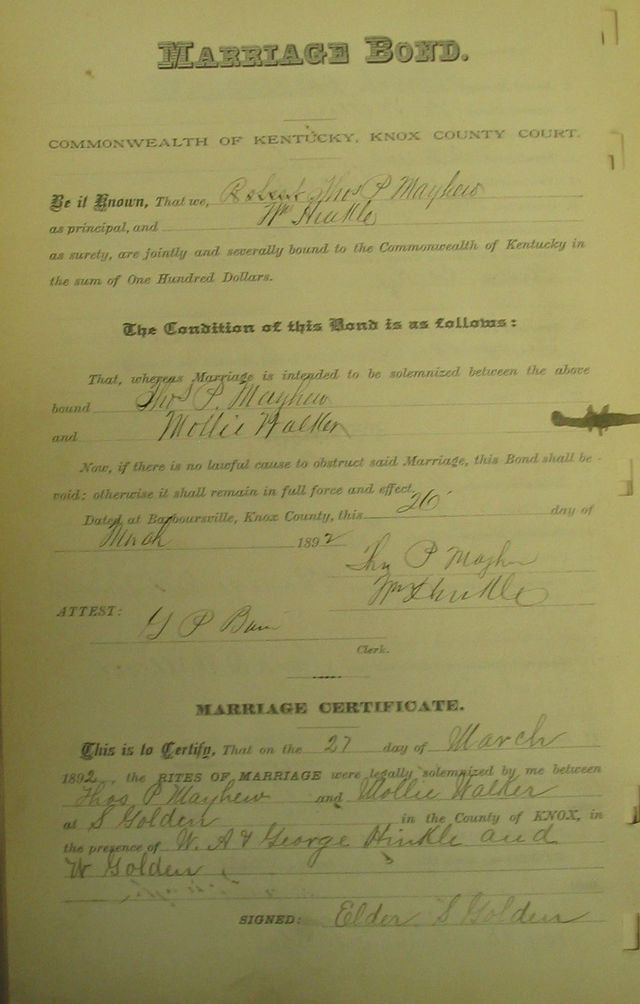 MARRIAGE BOND.
COMMONWEALTH OF KENTUCKY, KNOX COUNTY COURT.
Be it Known, That we, Robert Thos P Mayhew
as principal, and Wm Hinkle
as surety, are jointly and severally bound to the Commonwealth of Kentucky in
the sum of One Hundred Dollars.
The Condition of this Bond is as follows:
That, whereas Marriage is intended to be solemnized between the above
bound Thos P. Mayhew
and Mollie Walker
Now, if there is no lawful cause to obstruct said Marriage, this Bond shall be
void: otherwise it shall remain in full force and effect.
Dated at Barboursville, Knox County, this 26 day of
March 1892
Thos P Mayhew
Wm Hinkle
ATTEST:
G P
Clerk.
MARRIAGE CERTIFICATE.
This is to Certify, That on the 27 day of March
1892, the RITES OF MARRIAGE were legally solemnized by me between
Thos P Mayhew and Mollie Walker
at S Golden in the County of KNOX, in
the presence of W. A & George Hinkle and
W Golden
SIGNED: Elder S Golden